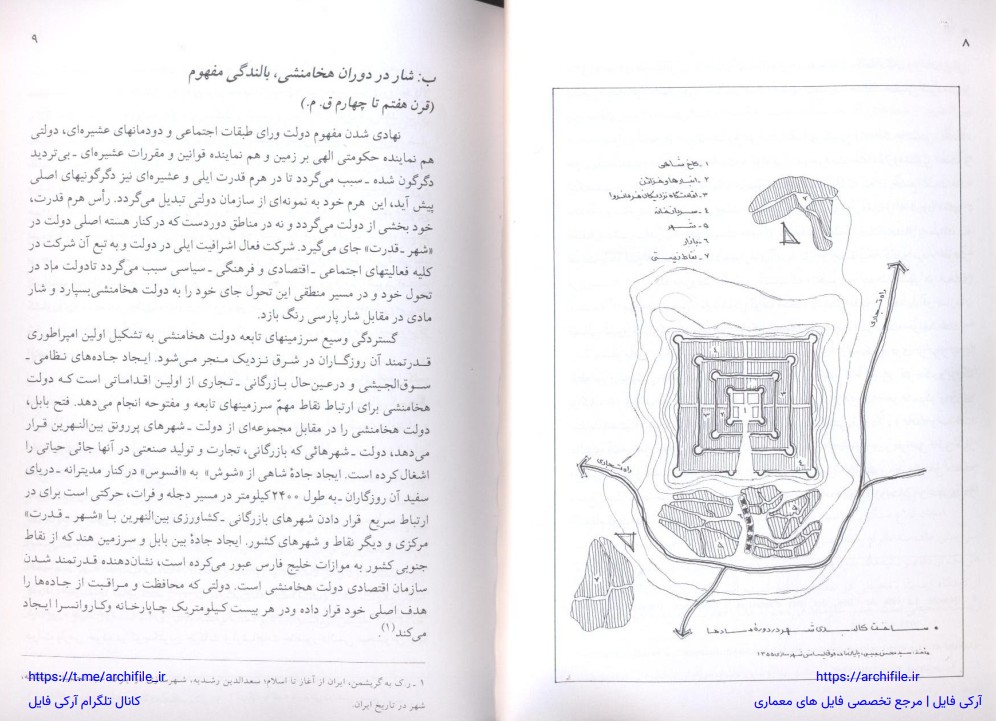 ۸
۱ ـ کاخ شاهی
۲ ـ انبارها و خزائن
۳ ـ اقامتگاه نزدیکان فرمانروا
۴ ـ سربازخانه
۵ ـ شهر
۶ ـ بازار
۷ ـ نقاط زیستی
راه تجاری
راه تجاری
ساخت کالبدی شهر در دورهٔ مادها
۹
ب: شار در دوران هخامنشی، بالندگی مفهوم
(قرن هفتم تا چهارم ق. م.)
نهادی شدن مفهوم دولت ورای طبقات اجتماعی و دودمانهای عشیره‌ای، دولتی
هم نماینده حکومتی الهی بر زمین و هم نماینده قوانین و مقررات عشیره‌ای ـ بی‌تردید
دگرگون شده ـ سبب می‌گردد تا در هرم قدرت ایلی و عشیره‌ای نیز دگرگونیهای اصلی
پیش آید، این هرم خود به نمونه‌ای از سازمان دولتی تبدیل می‌گردد. رأس هرم قدرت،
خود بخشی از دولت می‌گردد و نه در مناطق دوردست که در کنار هسته اصلی دولت در
«شهر ـ قدرت» جای می‌گیرد. شرکت فعال اشرافیت ایلی در دولت و به تبع آن شرکت در
کلیه فعالیتهای اجتماعی ـ اقتصادی و فرهنگی ـ سیاسی سبب می‌گردد تادولت ماد در
تحول خود و در مسیر منطقی این تحول جای خود را به دولت هخامنشی بسپارد و شار
مادی در مقابل شار پارسی رنگ بازد.
گستردگی وسیع سرزمینهای تابعه دولت هخامنشی به تشکیل اولین امپراطوری
قدرتمند آن روزگاران در شرق نزدیک منجر می‌شود. ایجاد جاده‌های نظامی ـ
سوق‌الجیشی و درعین‌حال بازرگانی ـ تجاری از اولین اقداماتی است که دولت
هخامنشی برای ارتباط نقاط مهمّ سرزمینهای تابعه و مفتوحه انجام می‌دهد. فتح بابل،
دولت هخامنشی را در مقابل مجموعه‌ای از دولت ـ شهرهای پررونق بین‌النهرین قرار
می‌دهد، دولت ـ شهرهائی که بازرگانی، تجارت و تولید صنعتی در آنها جائی حیاتی را
اشغال کرده است. ایجاد جادهٔ شاهی از «شوش» به «افسوس» در کنار مدیترانه ـ دریای
سفید آن روزگاران ـ به طول ۲۴۰۰ کیلومتر در مسیر دجله و فرات، حرکتی است برای در
ارتباط سریع قرار دادن شهرهای بازرگانی ـ کشاورزی بین‌النهرین با «شهر ـ قدرت»
مرکزی و دیگر نقاط و شهرهای کشور. ایجاد جادهٔ بین بابل و سرزمین هند که از نقاط
جنوبی کشور به موازات خلیج فارس عبور می‌کرده است، نشان‌دهنده قدرتمند شدن
سازمان اقتصادی دولت هخامنشی است. دولتی که محافظت و مراقبت از جاده‌ها را
هدف اصلی خود قرار داده ودر هر بیست کیلومتریک چاپارخانه وکاروانسرا ایجاد
می‌کند(۱).
۱ ـ ر.ک به گریشمن، ایران از آغاز تا اسلام؛ سعدالدین رشدیه،
شهر در تاریخ ایران.
https://t.me/archifile_ir
کانال تلگرام آرکی فایل
https://archifile.ir
آرکی فایل | مرجع تخصصی فایل های معماری